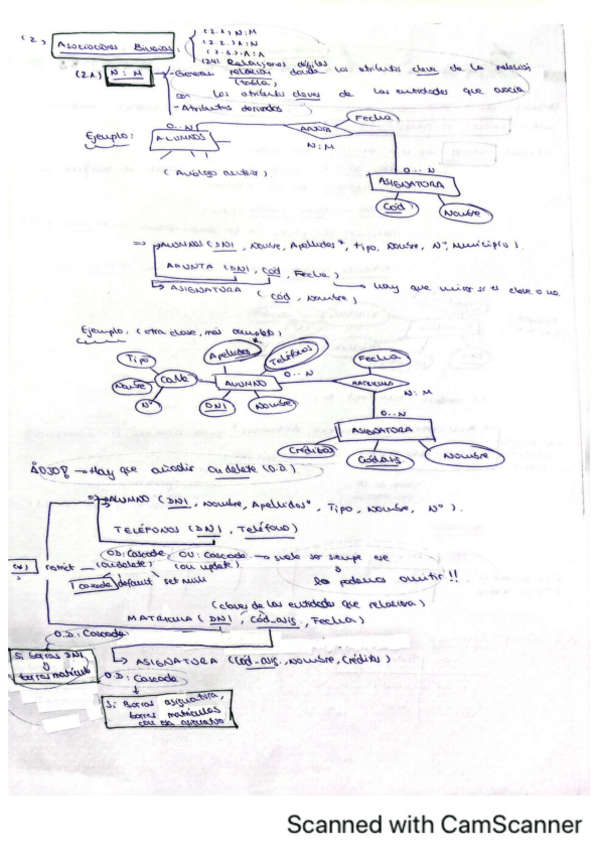 (2.) Asociaciones Binarias:
(2.1) N:M
(2.2) 1:N
(2.3) 1:1
(2.4) Relaciones débiles
(2.1) N:M → Generar relación donde los atributos clave de la relación
(tabla)
son los atributos claves de las entidades que asocia
- Atributos derivados
Fecha
Ejemplo:
0..N
ALUMNOS
APUNTA
N:M
(Análogo anterior)
0..N
ASIGNATURA
Cód
Nombre
⇒ ALUMNOS (DNI, Nombre, Apellidos*, Tipo, Nombre, Nº, Municipio).
APUNTA (DNI, Cód, Fecha)
→ hay que mirar si es clave o no.
→ ASIGNATURA (Cód, Nombre)
Ejemplo: (otra clase, más completo)
Tipo
Apellidos
Teléfonos
Fecha
Nombre
Calle
ALUMNO
0..N
MATRICULA
N:M
Nº
DNI
Nombre
0..N
ASIGNATURA
Créditos
Cód.Asig
Nombre
¡OJO! → Hay que añadir On delete (O.D.)
ALUMNO (DNI, Nombre, Apellidos*, Tipo, Nombre, Nº).
TELÉFONOS (DNI, Teléfono)
OD: Cascade
OU: Cascade → suele ser siempre ese
restrict
(on delete)
(on update)
cascade
default
set null
lo podemos omitir!!
(claves de las entidades que relaciona)
MATRICULA (DNI, Cód_asig, Fecha)
O.D: Cascada
Si borras DNI
y
borras matrícula
→ ASIGNATURA (Cód-asig, Nombre, Créditos)
O.D: Cascada
Si Borras asignatura,
borras matrículas
con esa asignatura
Scanned with CamScanner